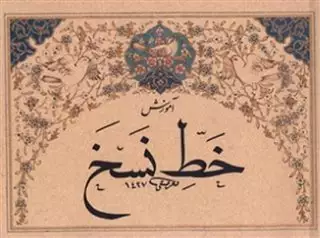 آموزش
خطِّ نسخ
۱۴۲۷